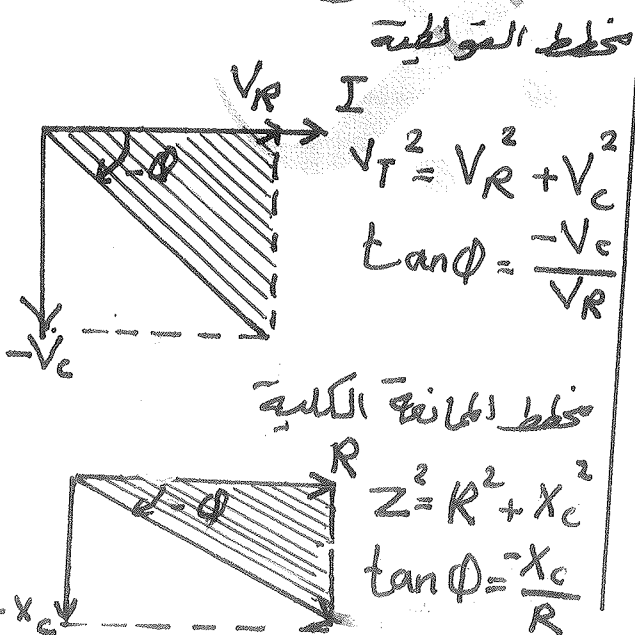 مخطط الفولطية
V_R I
-Φ
V_T² = V_R² + V_C²
tanΦ = -V_C / V_R
-V_C
مخطط الممانعة الكلية
R
-Φ
Z² = R² + X_C²
tanΦ = -X_C / R
-X_C